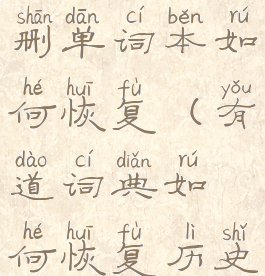 shān dān cí běn rú
删单词本如
hé huī fù yǒu
何恢复（有
dào cí diǎn rú
道词典如
hé huī fù lì shǐ
何恢复历史